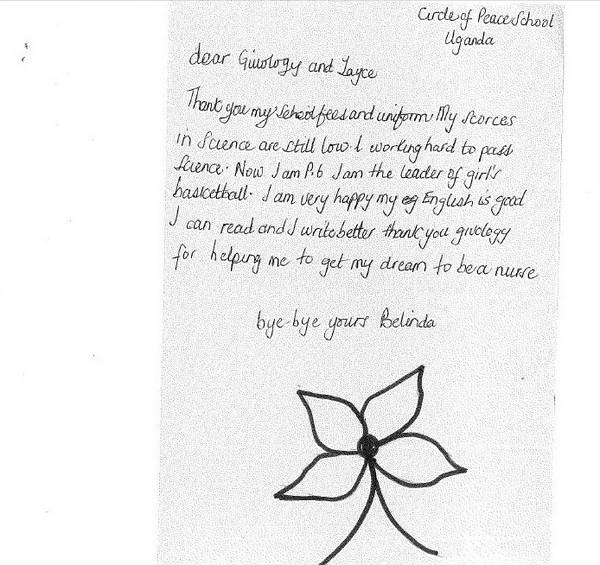 Circle of Peace School
Uganda
dear Givology and Tayce
Thank you my School fees and uniform. My scorces
in Science are still low. I working hard to pass
Science. Now I am P.6 I am the leader of girl's
basketball. I am very happy my eg English is good
I can read and I write better thank you givology
for helping me to get my dream to be a nurse
bye-bye yours Belinda